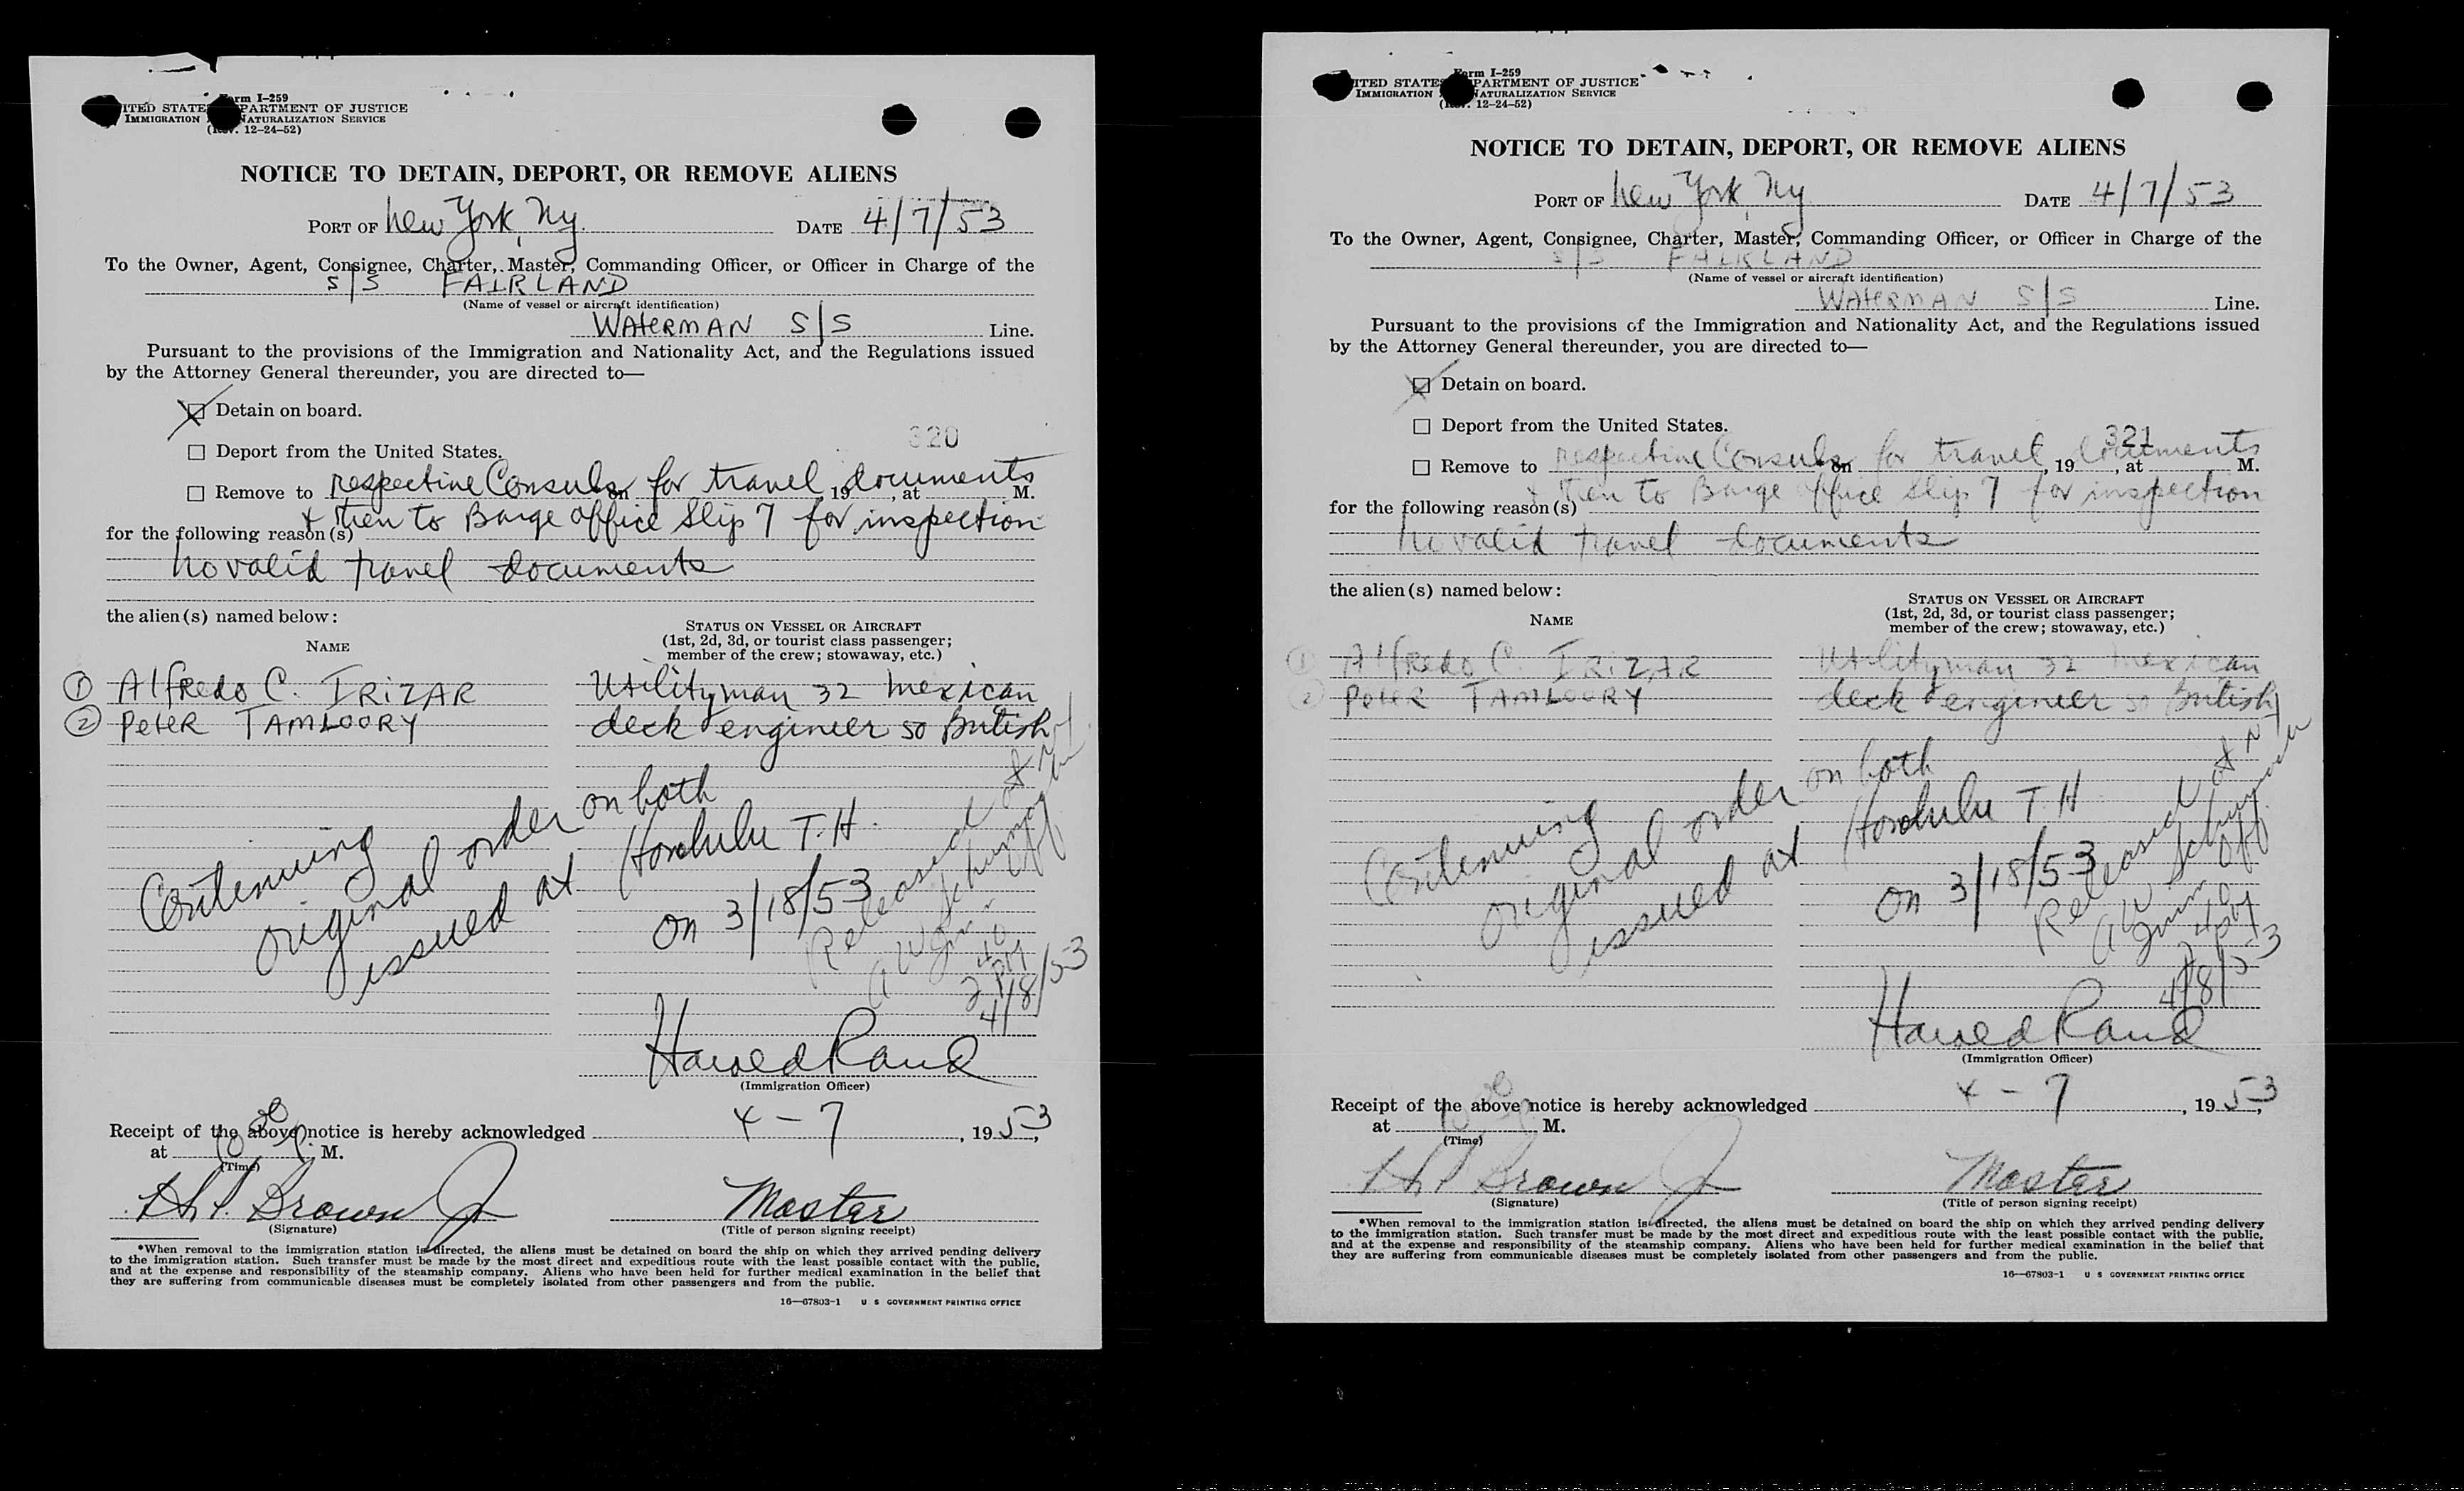 Form I-259
UNITED STATES DEPARTMENT OF JUSTICE
IMMIGRATION NATURALIZATION SERVICE
12-24-52)
NOTICE TO DETAIN, DEPORT, OR REMOVE ALIENS
PORT OF New York, Ny DATE 4/7/53
To the Owner, Agent, Consignee, Charter, Master, Commanding Officer, or Officer in Charge of the
S/S FAIRLAND
(Name of vessel or aircraft identification)
WATERMAN S/S Line.
Pursuant to the provisions of the Immigration and Nationality Act, and the Regulations issued
by the Attorney General thereunder, you are directed to—
Detain on board.
320
Deport from the United States.
Remove to respective Consuls on for travel, 19 documents, at M.
& then to Barge office Slip 7 for inspection
for the following reason(s)
No valid travel documents
the alien(s) named below:
NAME
STATUS ON VESSEL OR AIRCRAFT
(1st, 2d, 3d, or tourist class passenger;
member of the crew; stowaway, etc.)
① Alfredo C. IRIZAR Utilityman 32 Mexican
② Peter TAMLOORY deck engineer 50 British
Continuing
original order on both
issued at Honolulu T.H.
on 3/18/53
Released at
Imm. Off.
2 40 PM
4/8/53
Harold Rand
(Immigration Officer)
Receipt of the above notice is hereby acknowledged 4 - 7, 1953,
at M.
(Time)
H. Brown Jr Master
(Signature) (Title of person signing receipt)
*When removal to the immigration station is directed, the aliens must be detained on board the ship on which they arrived pending delivery
to the immigration station. Such transfer must be made by the most direct and expeditious route with the least possible contact with the public,
and at the expense and responsibility of the steamship company. Aliens who have been held for further medical examination in the belief that
they are suffering from communicable diseases must be completely isolated from other passengers and from the public.
16—67803-1 U S GOVERNMENT PRINTING OFFICE
Form I-259
UNITED STATES DEPARTMENT OF JUSTICE
IMMIGRATION NATURALIZATION SERVICE
12-24-52)
NOTICE TO DETAIN, DEPORT, OR REMOVE ALIENS
PORT OF New York, Ny DATE 4/7/53
To the Owner, Agent, Consignee, Charter, Master, Commanding Officer, or Officer in Charge of the
S/S FAIRLAND
(Name of vessel or aircraft identification)
WATERMAN S/S Line.
Pursuant to the provisions of the Immigration and Nationality Act, and the Regulations issued
by the Attorney General thereunder, you are directed to—
Detain on board.
Deport from the United States.
321
Remove to respective Consuls on for travel, 19 documents, at M.
& then to Barge office Slip 7 for inspection
for the following reason(s)
No valid travel documents
the alien(s) named below:
NAME
STATUS ON VESSEL OR AIRCRAFT
(1st, 2d, 3d, or tourist class passenger;
member of the crew; stowaway, etc.)
① Alfredo C. IRIZAR Utilityman 32 Mexican
② Peter TAMLOORY deck engineer 50 British
Continuing
original order on both
issued at Honolulu T.H
on 3/18/53
Released at
Imm. Off.
2 40 PM
4/8/53
Harold Rand
(Immigration Officer)
Receipt of the above notice is hereby acknowledged 4 - 7, 1953,
at M.
(Time)
H. Brown Jr Master
(Signature) (Title of person signing receipt)
*When removal to the immigration station is directed, the aliens must be detained on board the ship on which they arrived pending delivery
to the immigration station. Such transfer must be made by the most direct and expeditious route with the least possible contact with the public,
and at the expense and responsibility of the steamship company. Aliens who have been held for further medical examination in the belief that
they are suffering from communicable diseases must be completely isolated from other passengers and from the public.
16—67803-1 U S GOVERNMENT PRINTING OFFICE